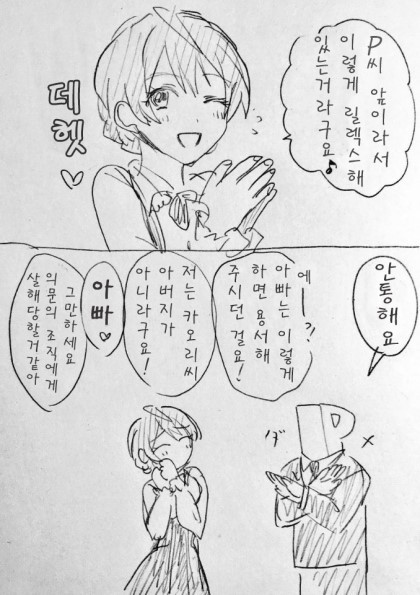 P씨 앞이라서
이렇게 릴렉스해
있는거라구요♪
데헷♡
안통해요
에ーっ?!
아빠는 이렇게
하면 용서해
주시던걸요!
저는 카오리씨
아버지가
아니라구요!
아빠♡
그만하세요
의문의 조직에게
살해당할거같아
P